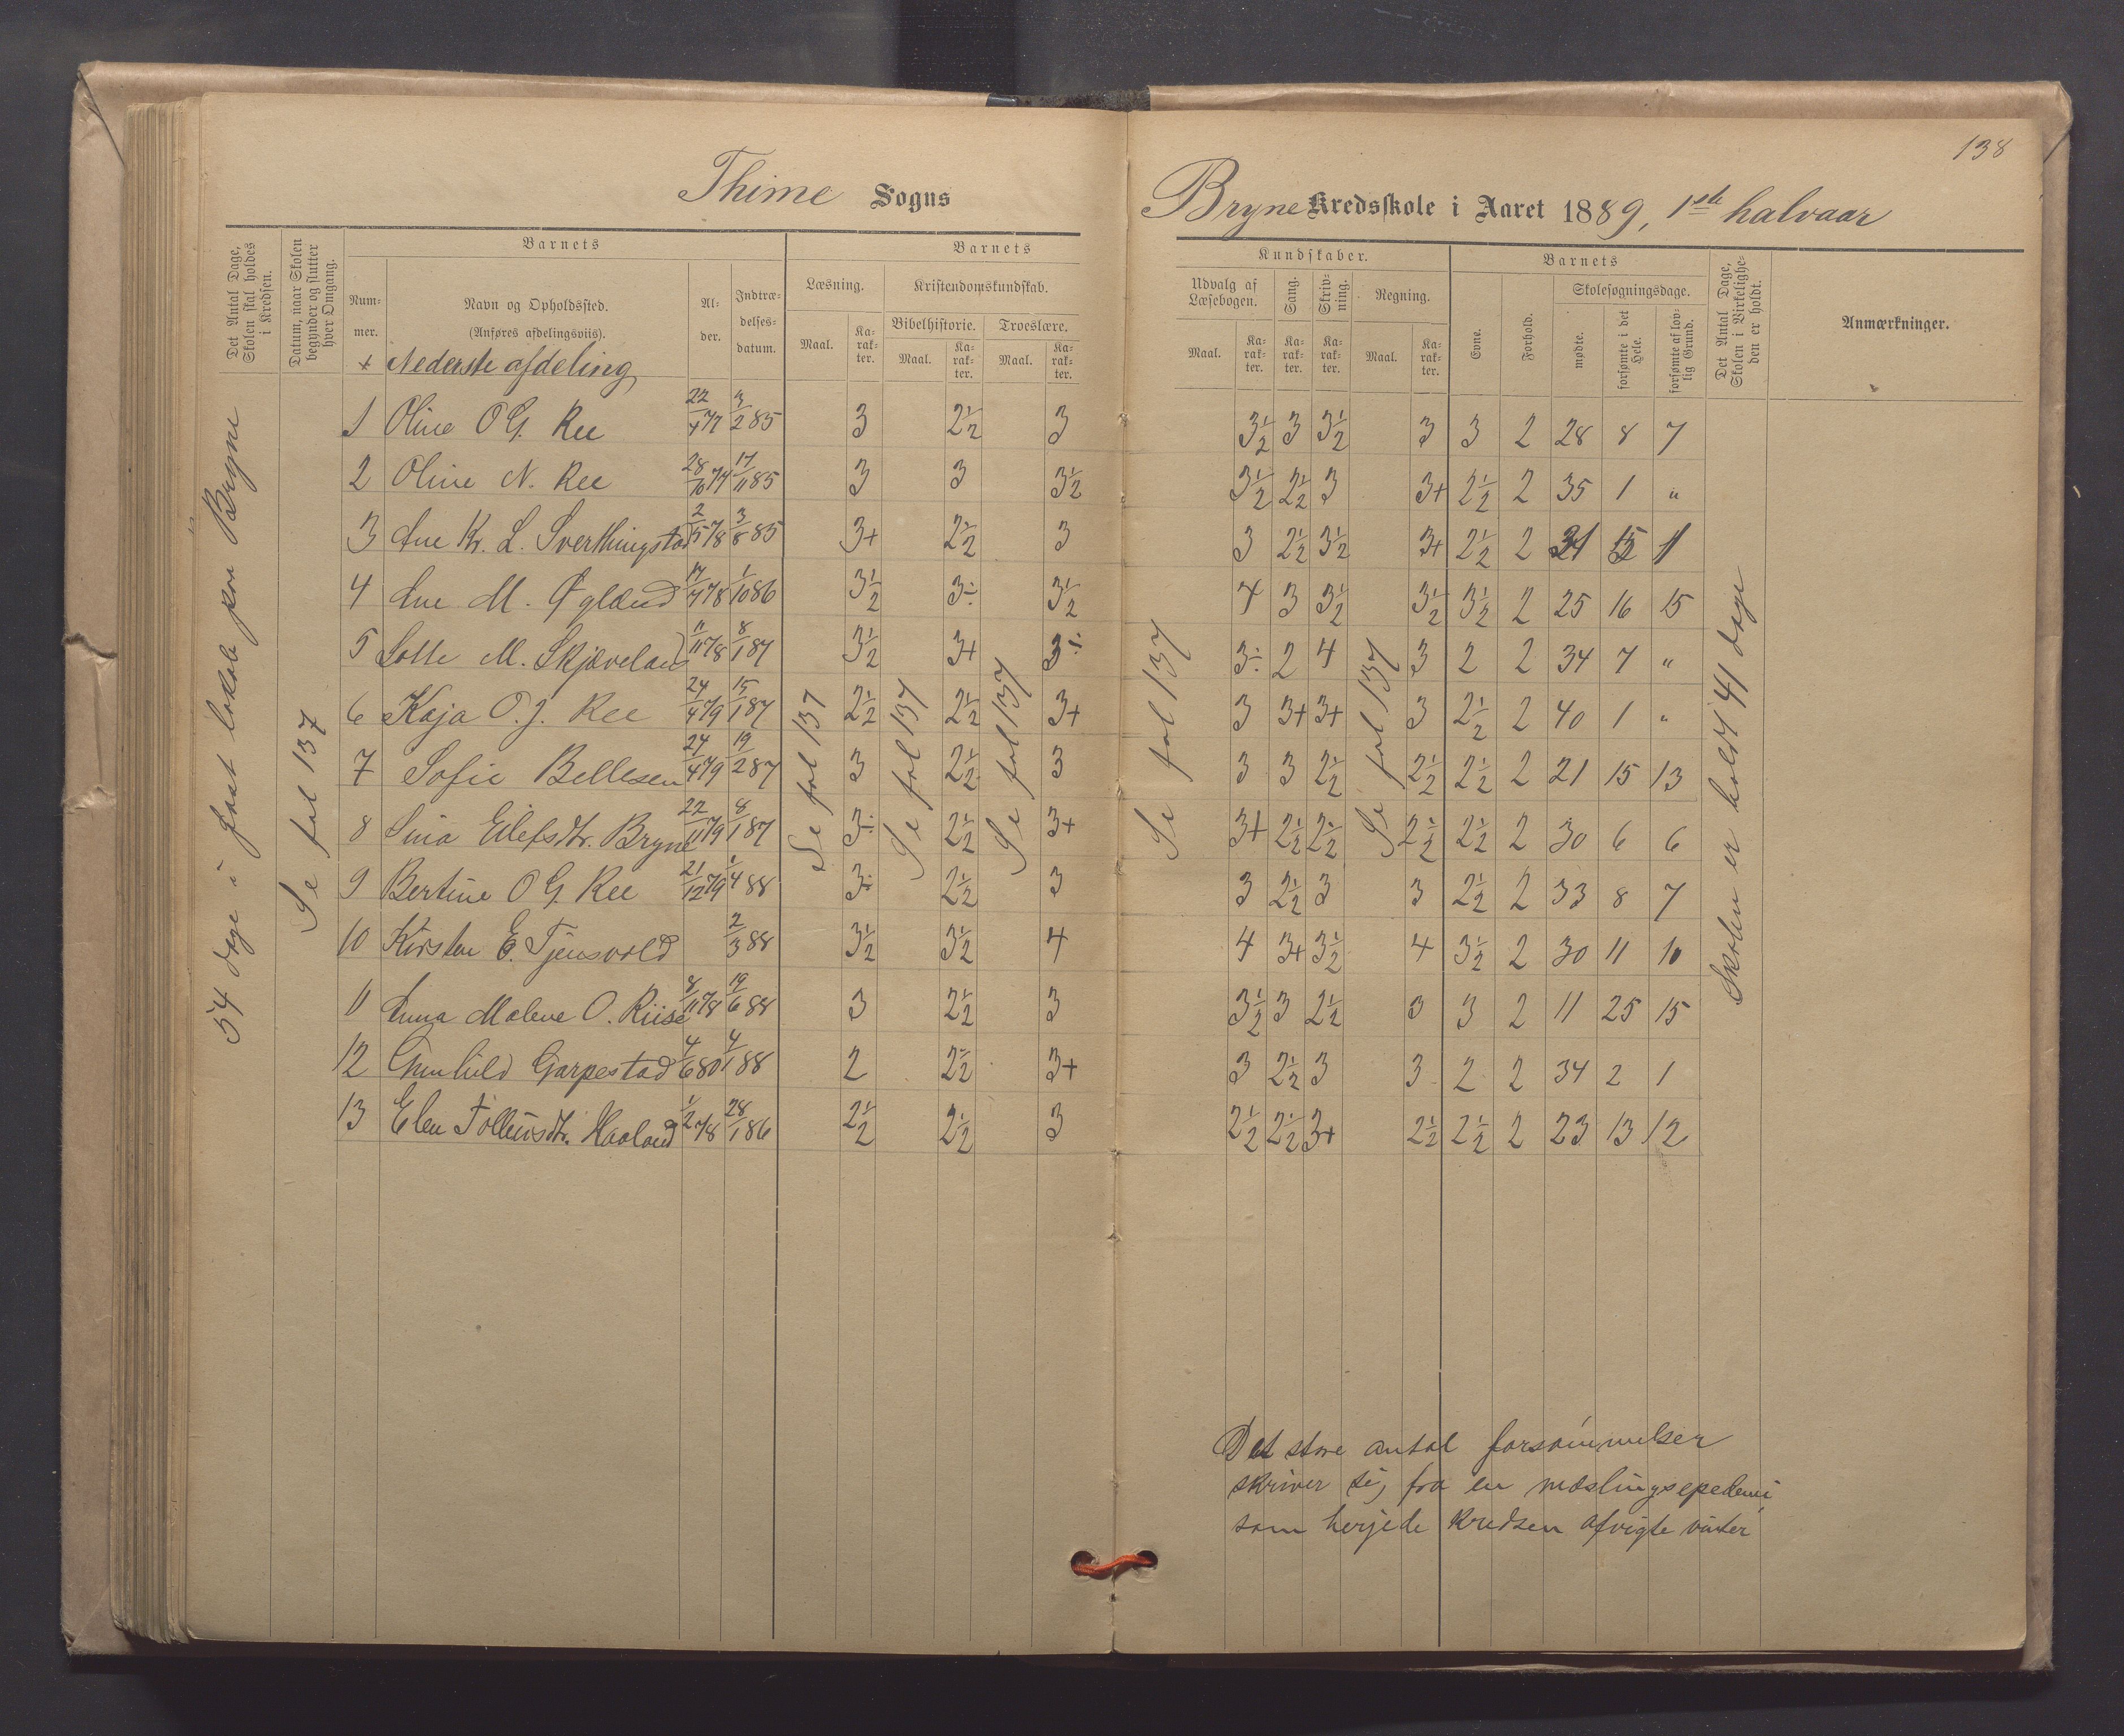 138
Thime Sogns Bryne Kredsskole i Aaret 1889, 1ste halvaar
Det Antal Dage, Skolen skal holdes i Kredsen.
Datum, naar Skolen begynder og slutter hver Omgang.
Barnets
Nummer.
Navn og Opholdssted.
(Anføres afdelingsviis).
Alder.
Indtrædelsesdatum.
Barnets
Læsning.
Maal. Karakter.
Kristendomskundskab.
Bibelhistorie.
Maal. Karakter.
Troeslære.
Maal. Karakter.
Kundskaber.
Udvalg af Læsebogen.
Maal. Karakter.
Sang.
Karakter.
Skrivning.
Karakter.
Regning.
Maal. Karakter.
Barnets
Evne.
Forhold.
Skolesøgningsdage.
mødte.
forsømte i det Hele.
forsømte af lovlig Grund.
Det Antal Dage, Skolen i Virkeligheden er holdt.
Anmærkninger.
+ Nederste afdeling
54 dage i fast lokale paa Bryne
Se fol 137
Se fol 137
Se fol 137
Se fol 137
Se fol 137
Se fol 137
Skolen er holdt 41 dage
1 Oline O G. Ree 22/4 77 3/2 85 3 2½ 3 3½ 3 3½ 3 3 2 28 8 7
2 Oline N. Ree 28/10 74 17/11 85 3 3 3½ 3½ 2½ 3 3+ 2½ 2 35 1 "
3 Ane Kr. L. Sverthingstad 2/5 78 3/8 85 3+ 2½ 3 3 2½ 3½ 3+ 2½ 2
4 Ane M. Øglænd 17/4 78 1/10 86 3½ 3÷ 3½ 4 3 3½ 3½ 3½ 2 25 16 15
5 Lotte M. Skjæveland 11/11 78 8/1 87 3½ 3+ 3÷ 3÷ 2 4 3 2 2 34 7 "
6 Kaja O. J. Ree 24/4 79 15/1 87 2½ 2½ 3+ 3 3+ 3+ 3 2½ 2 40 1 "
7 Sofie Bellesen 24/4 79 19/2 87 3 2½ 3 3 3 2½ 2½ 2½ 2 21 15 13
8 Sina Eilefsdtr. Bryne 22/11 79 8/1 87 3÷ 2½ 3+ 3+ 2½ 2½ 2½ 2½ 2 30 6 6
9 Bertine O G. Ree 21/12 79 1/4 88 3÷ 2½ 3 3 2½ 3 3 2½ 2 33 8 7
10 Kirsten E. Tjensvold 2/3 88 3½ 3½ 4 4 3+ 3½ 4 3½ 2 30 11 10
11 Anna Malene O. Riise 8/11 78 19/6 88 3 2½ 3 3½ 3 2½ 3 3 2 11 25 15
12 Gunhild Garpestad 4/6 80 4/1 88 2 2½ 3+ 3 2½ 3 3 2 2 34 2 1
13 Elen Tollensdtr. Haaland 1/2 78 28/1 86 2½ 2½ 3 2½ 2½ 3+ 2½ 2½ 2 23 13 12
Det store antal forsømmelser
skriver sig fra en mæslingsepedemi,
som herjede kredsen afvigte vinter